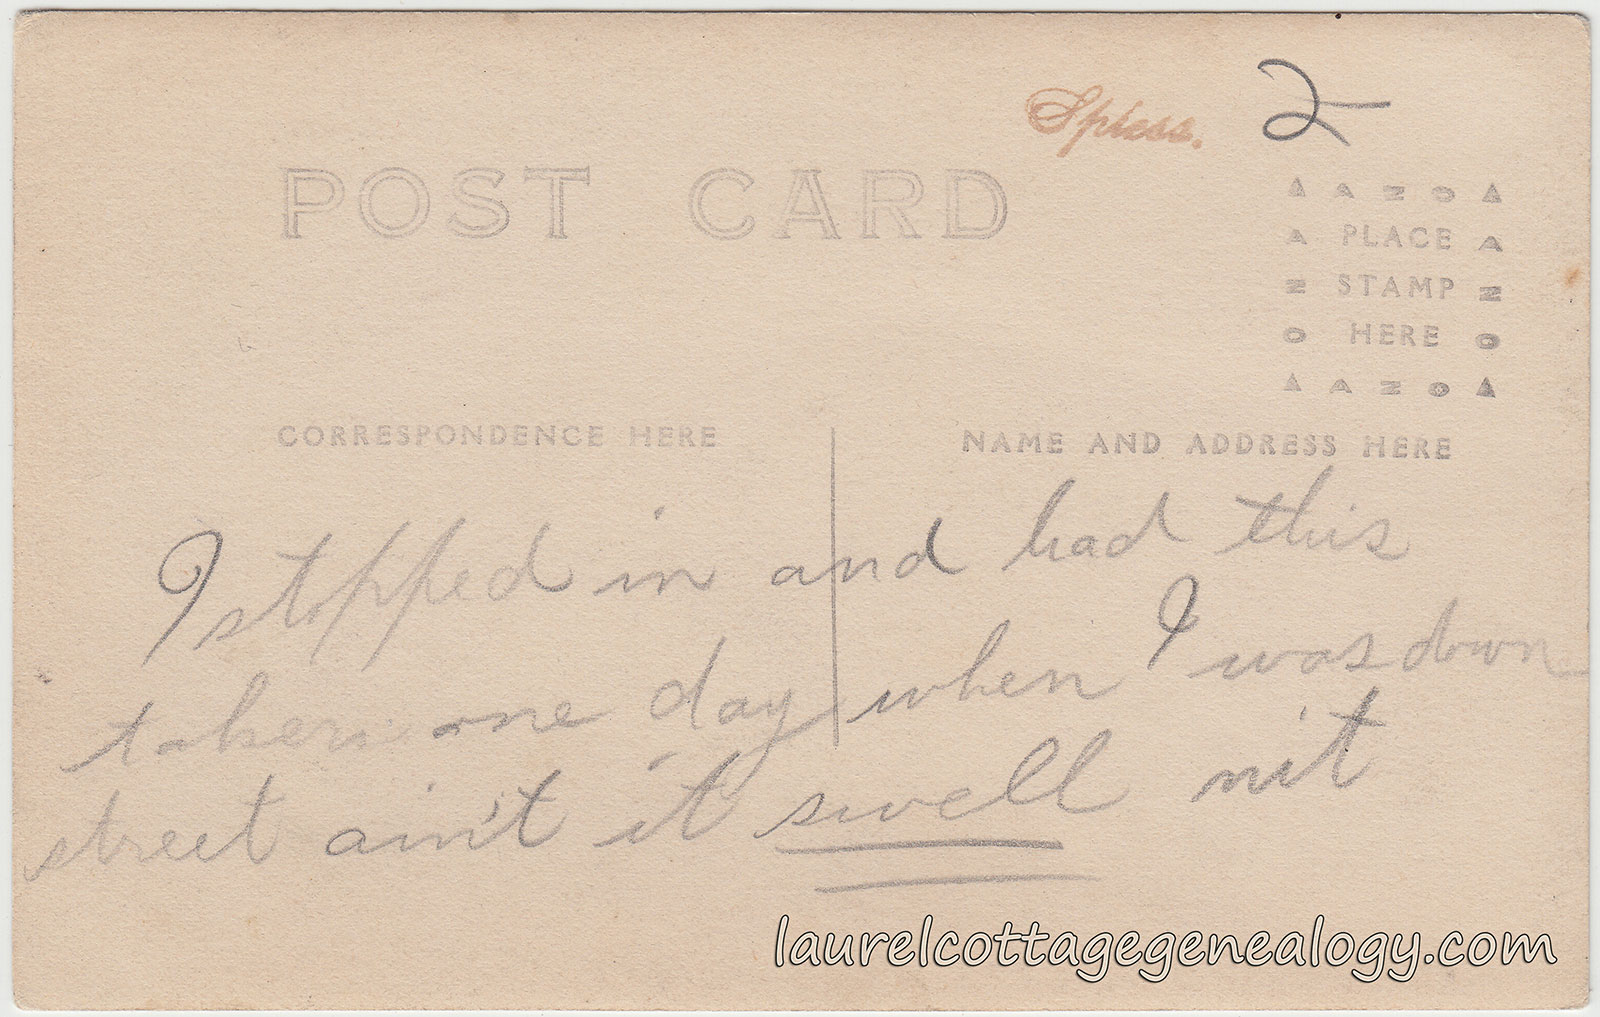 Spiess. 2
POST CARD
A A N O A
A PLACE A
N STAMP N
O HERE O
A A N O A
CORRESPONDENCE HERE
NAME AND ADDRESS HERE
I stopped in and had this
taken one day when I was down
street ain't it swell nit
laurelcottagegenealogy.com